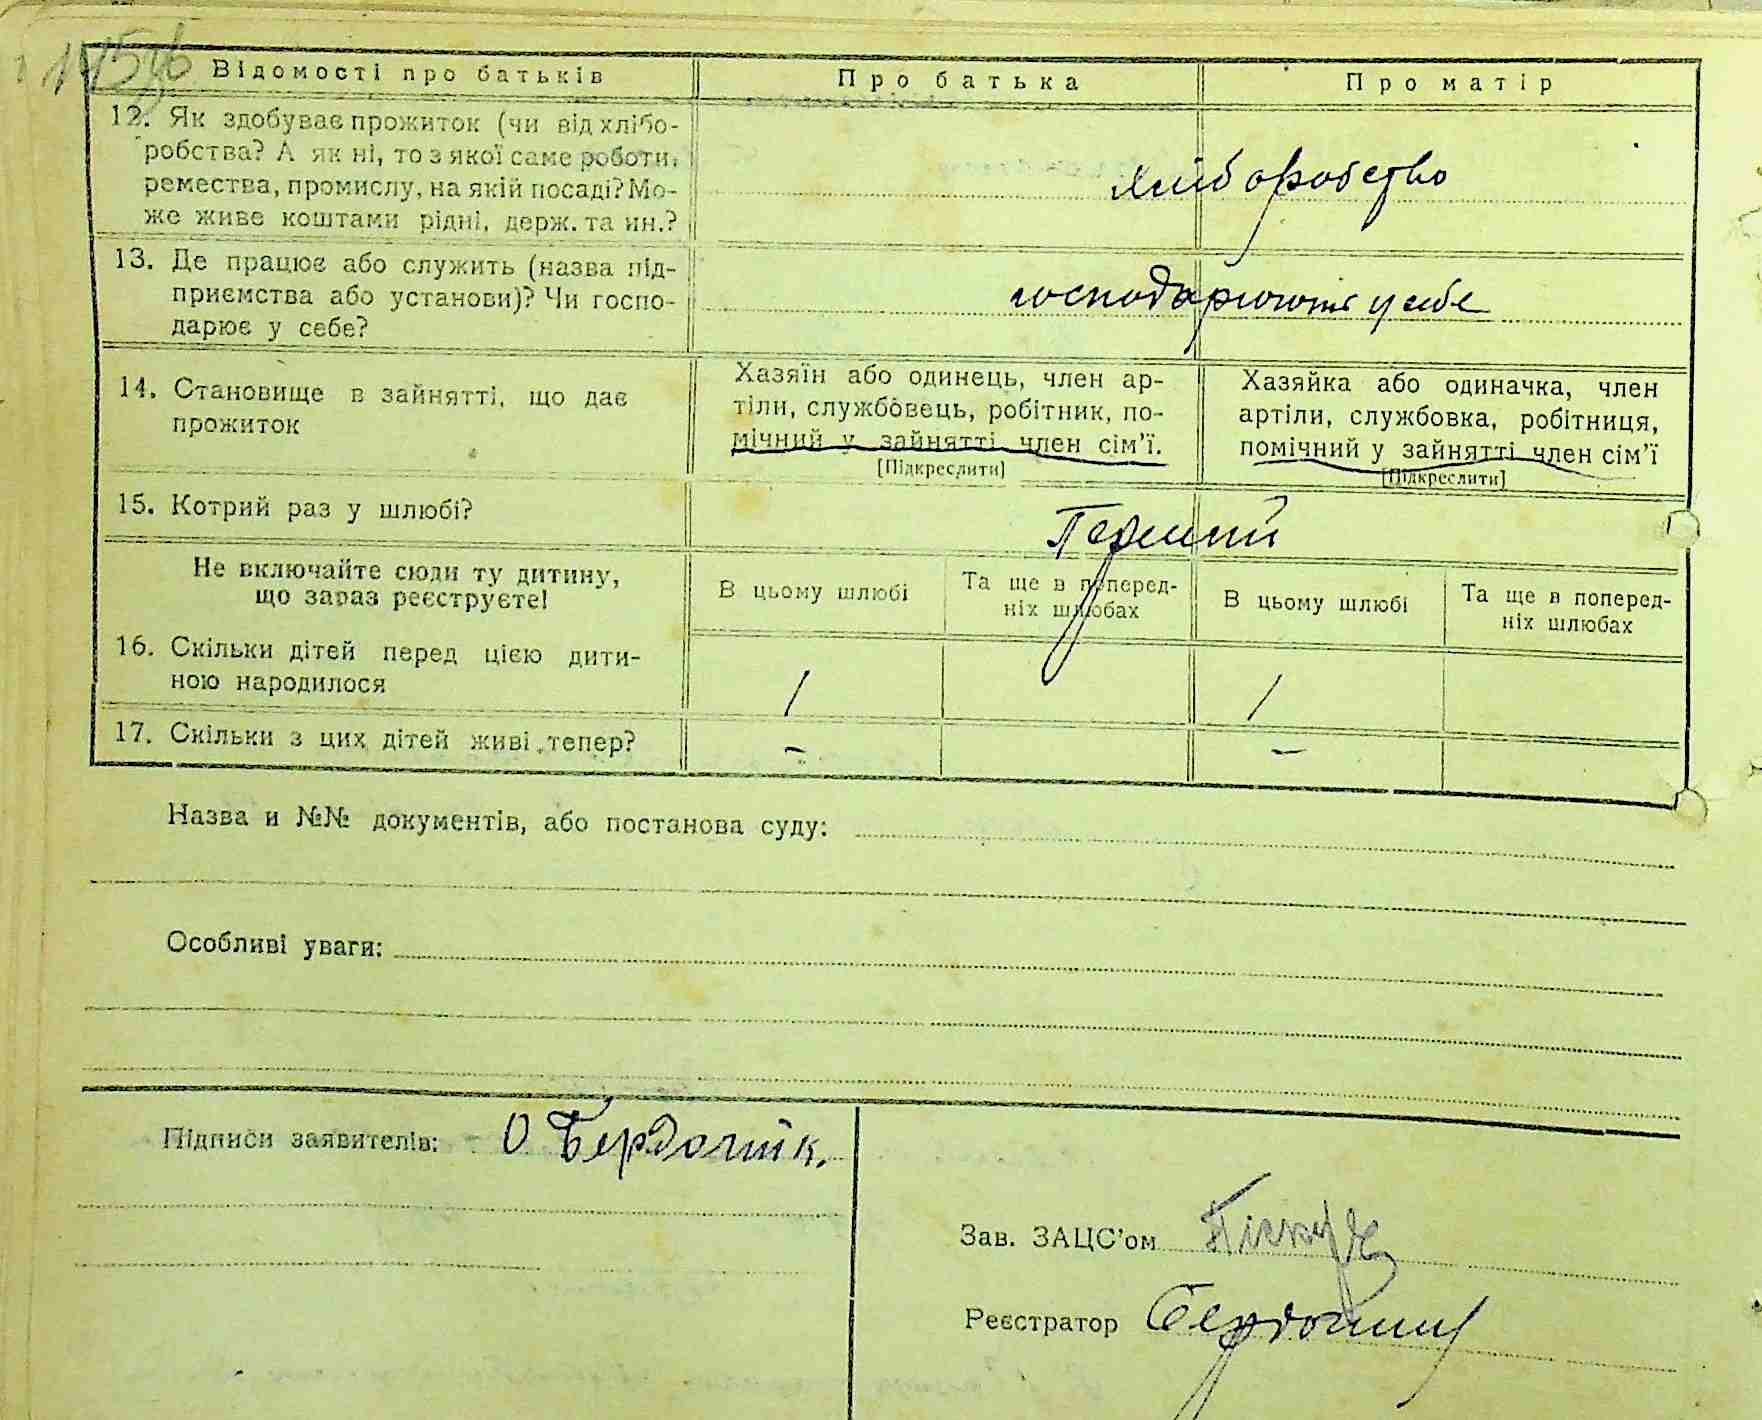 Відомості про батьків
Про батька
Про матір
12. Як здобуває прожиток (чи від хлібо-
робства? А як ні, то з якої саме роботи,
ремества, промислу, на якій посаді? Мо-
же живе коштами рідні, держ. та ин.?
хліборобство
13. Де працює або служить (назва під-
приємства або установи)? Чи госпо-
дарює у себе?
господарюють у себе
14. Становище в зайнятті, що дає
прожиток
Хазяїн або одинець, член ар-
тіли, службовець, робітник, по-
мічний у зайнятті член сім'ї.
[Підкреслити]
Хазяйка або одиначка, член
артіли, службовка, робітниця,
помічний у зайнятті член сім'ї
[Підкреслити]
15. Котрий раз у шлюбі?
Перший
Не включайте сюди ту дитину,
що зараз реєструєте!
В цьому шлюбі
Та ще в поперед-
ніх шлюбах
В цьому шлюбі
Та ще в поперед-
ніх шлюбах
16. Скільки дітей перед цією дити-
ною народилося
1
1
17. Скільки з цих дітей живі тепер?
–
–
Назва и №№ документів, або постанова суду:
Особливі уваги:
Підписи заявителів:
О
Зав. ЗАЦС'ом
Реєстратор